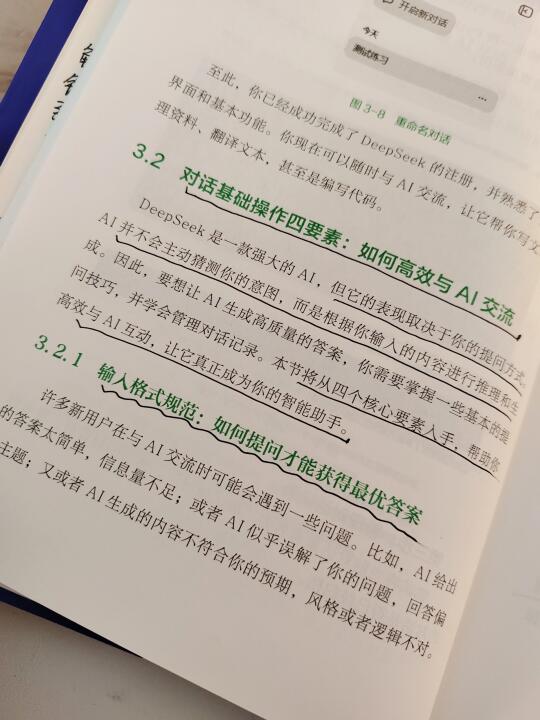 开启新对话
今天
测试练习
图 3-8 重命名对话
至此，你已经成功完成了 DeepSeek 的注册，并熟悉了
界面和基本功能。你现在可以随时与 AI 交流，让它帮你写文
理资料、翻译文本，甚至是编写代码。
3.2 对话基础操作四要素：如何高效与 AI 交流
DeepSeek 是一款强大的 AI，但它的表现取决于你的提问方式。
AI 并不会主动猜测你的意图，而是根据你输入的内容进行推理和生
成。因此，要想让 AI 生成高质量的答案，你需要掌握一些基本的提
问技巧，并学会管理对话记录。本节将从四个核心要素入手，帮助你
高效与 AI 互动，让它真正成为你的智能助手。
3.2.1 输入格式规范：如何提问才能获得最优答案
许多新用户在与 AI 交流时可能会遇到一些问题。比如，AI 给出
的答案太简单，信息量不足；或者 AI 似乎误解了你的问题，回答偏
主题；又或者 AI 生成的内容不符合你的预期，风格或者逻辑不对。